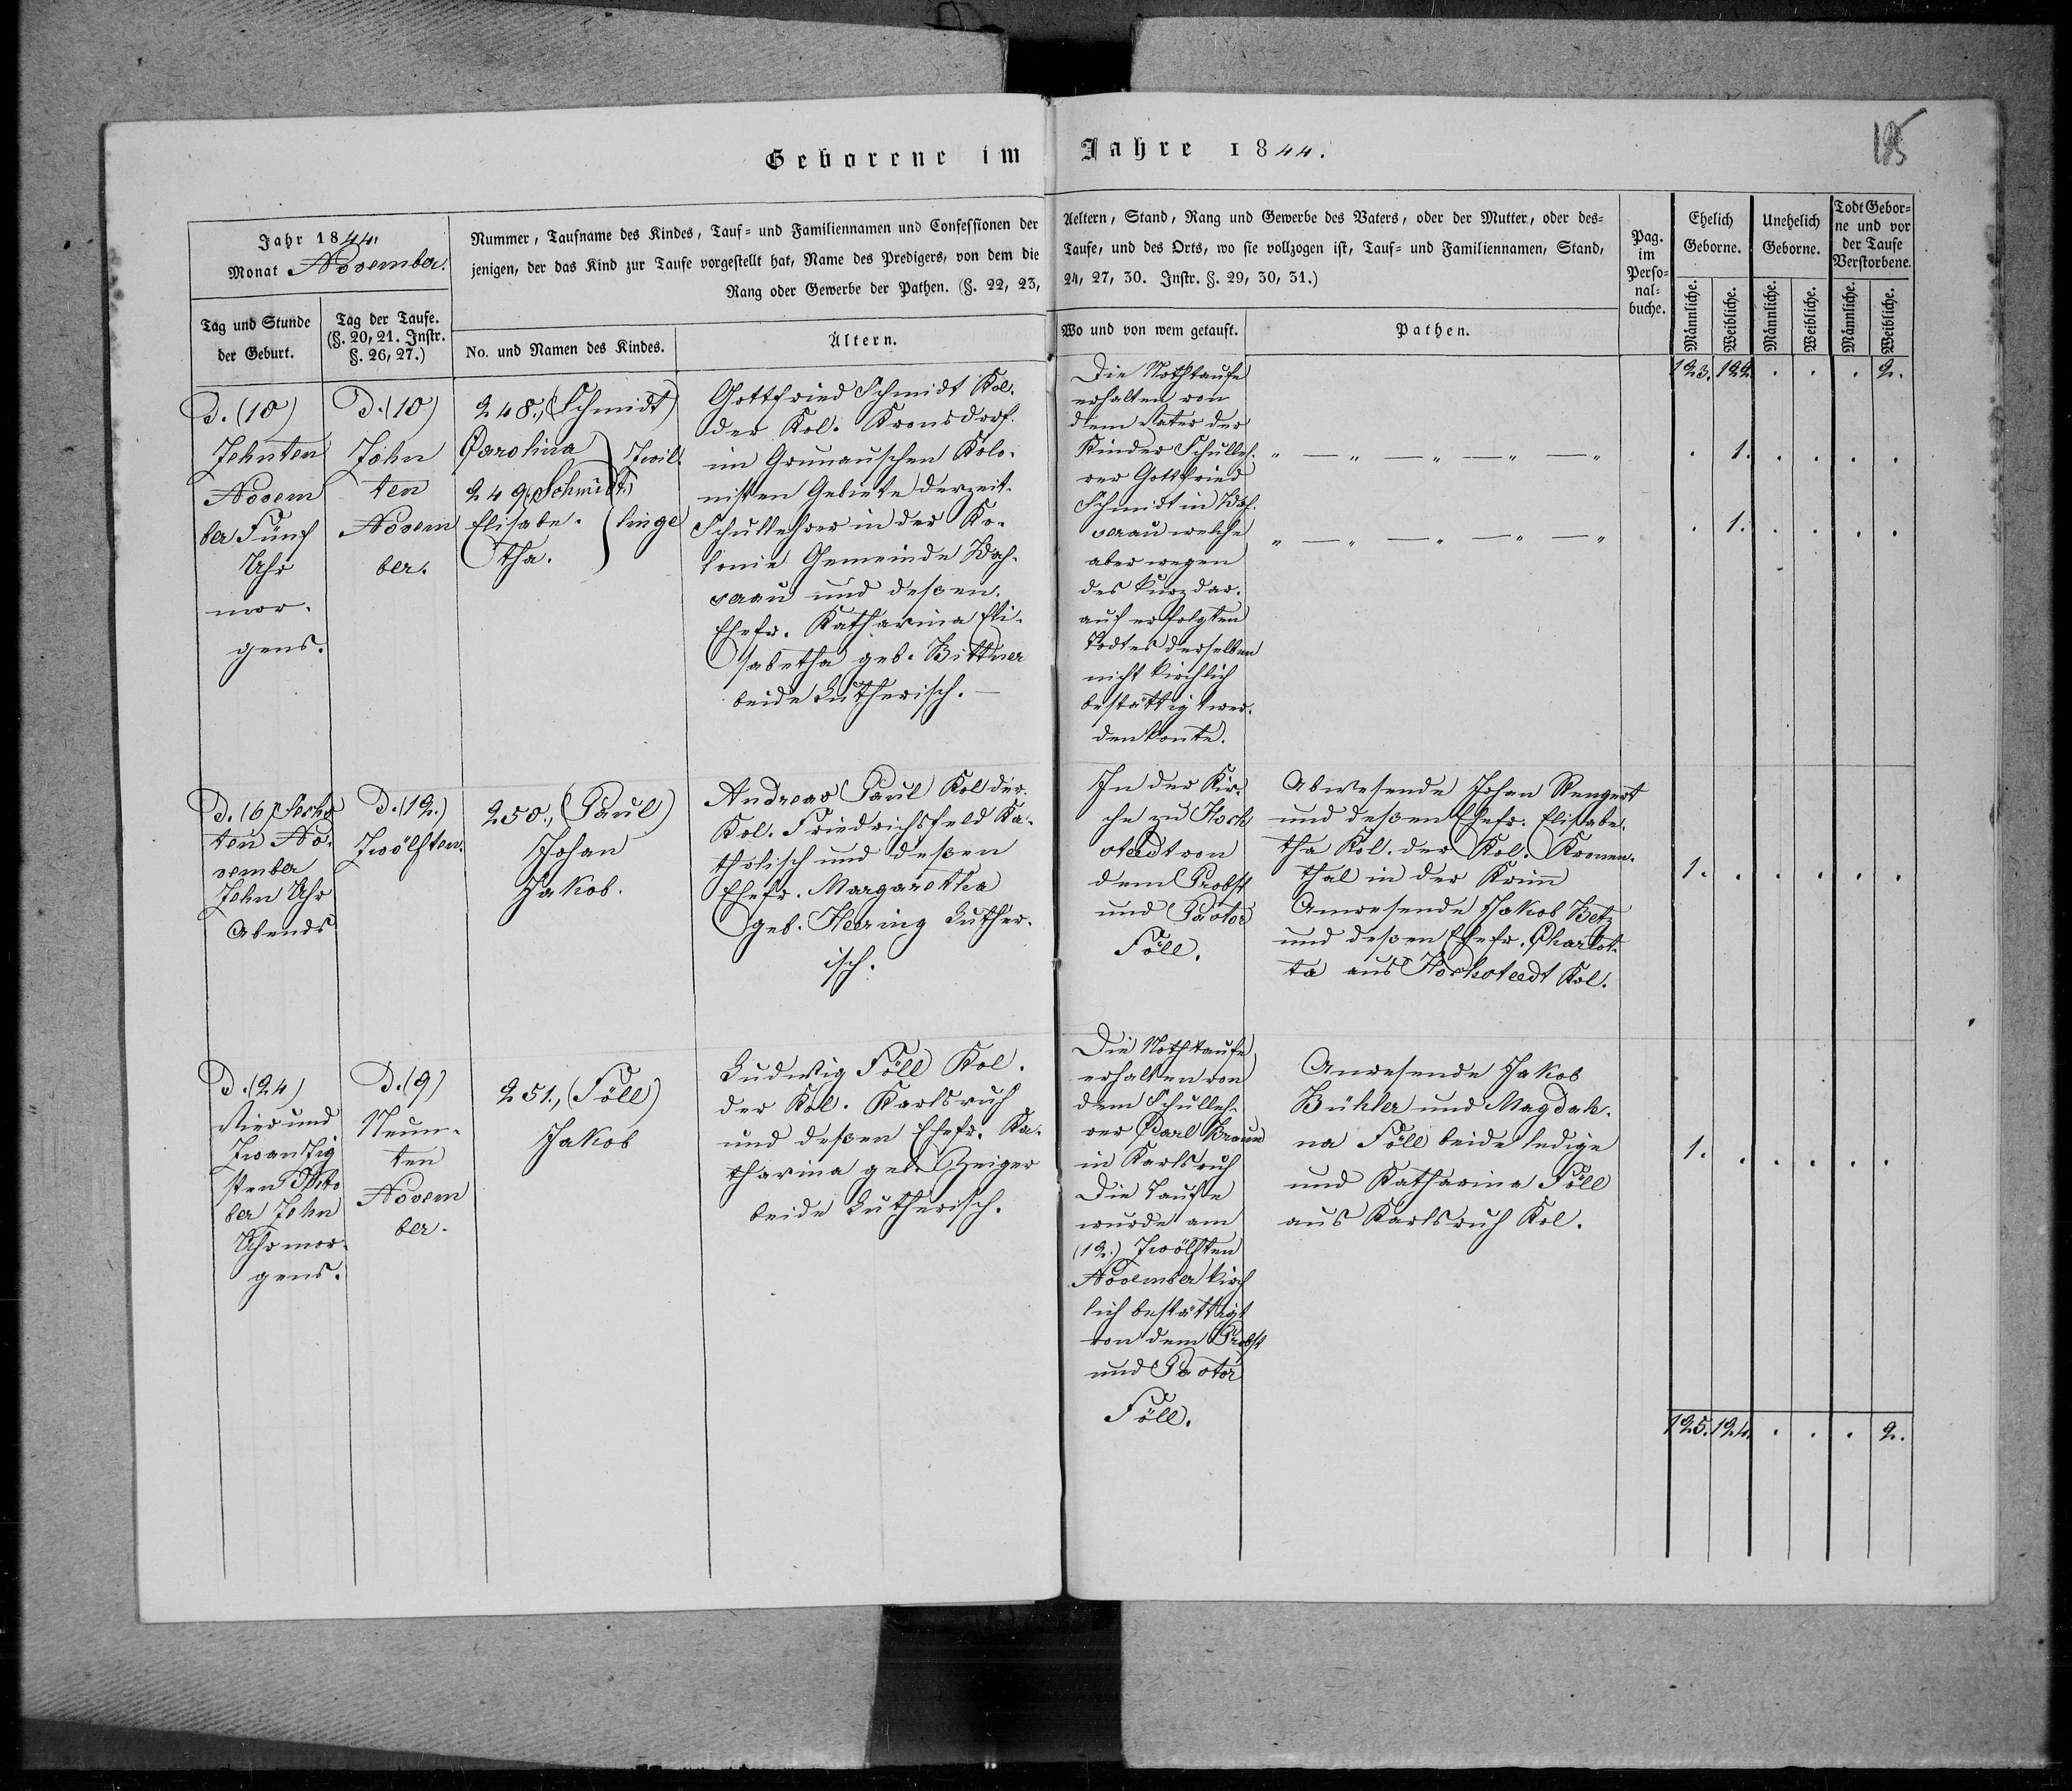 Geborene im Jahre 1844.
185
Jahr 1844.
Monat November.
Nummer, Taufname des Kindes, Tauf- und Familiennamen und Confessionen der Aeltern, Stand, Rang und Gewerbe des Vaters, oder der Mutter, oder des-
jenigen, der das Kind zur Taufe vorgestellt hat, Name des Predigers, von dem die Taufe, und des Orts, wo sie vollzogen ist, Tauf- und Familiennamen, Stand,
Rang oder Gewerbe der Pathen. (§. 22, 23, 24, 27, 30. Instr. §. 29, 30, 31.)
Pag.
im
Perso-
nal-
buche.
Ehelich
Geborne.
Unehelich
Geborne.
Todt Gebor-
ne und vor
der Taufe
Verstorbene.
Tag und Stunde
der Geburt.
Tag der Taufe.
(§. 20, 21. Instr.
§. 26, 27.)
No. und Namen des Kindes.
Ältern.
Wo und von wem getauft.
Pathen.
Männliche.
Weibliche.
Männliche.
Weibliche.
Männliche.
Weibliche.
123. 122. . . . 2.
D. (10)
Zehnten
Novem
ber Fünf
Uhr
mor-
gens.
D. (10)
Zehn
ten
Novem
ber.
248., (Schmidt)
Carolina
249. (Schmidt)
Elisabe-
tha.
Zwil-
linge
Gottfried Schmidt Kol.
der Kol. Kronsdorf.
im Grunauschen Kolo-
nisten Gebiete derzeit-
Schullehrer in der Ko-
lonie Gemeinde
und deßen
Ehefr. Katharina Eli-
sabetha geb. Bittner
beide Lutherisch. —
Die Nothtaufe
erhalten von
dem Vater der
Kinder Schulleh-
rer Gottfried
Schmidt in
welche
aber wegen
des kurz dar-
auf erfolgten
Todtes derselben
nicht kirchlich
bestättigt wer-
den konte.
" — " — " — " — "
" — " — " — " — "
. 1. . . . .
. 1. . . . .
D. (6) Sechs
ten No-
vember
Zehn Uhr
Abends
D. (12.)
Zwölften.
250., (Paul)
Johan
Jakob.
Andreas Paul Kol der
Kol. Friedrichsfeld Ka-
tholisch und deßen
Ehefr. Margaretha
geb. Hering Luther-
isch.
In der Kir-
che zu Hoch
stedt von
dem Probst
und Pastor
Föll.
Abwesende Johan Rengert
und deßen Ehefr. Elisabe-
tha Kol. der Kol. Kronen-
thal in der Krim
Anwesende Jakob Betz
und deßen Ehefr. Charlot-
ta aus Hochstedt Kol.
1. . . . . .
D. (24)
Vier und
Zwanzig
sten Okto
ber Zehn
Uhr mor-
gens.
D. (9)
Neun-
ten
Novem
ber.
251., (Föll)
Jakob
Ludwig Föll Kol.
der Kol. Karlsruh
und deßen Ehefr. Ka-
tharina geb. Zeiger
beide Lutherisch.
Die Nothtaufe
erhalten von
dem Schulleh-
rer Carl Braun
in Karlsruh
Die Taufe
wurde am
(12.) Zwölften
November kirch
lich bestättigt
von dem Probst
und Pastor
Föll.
Anwesende Jakob
Bühler und Magdale-
na Föll beide ledige
und Katharina Föll
aus Karlsruh Kol.
1. . . . . .
125. 124. . . . 2.